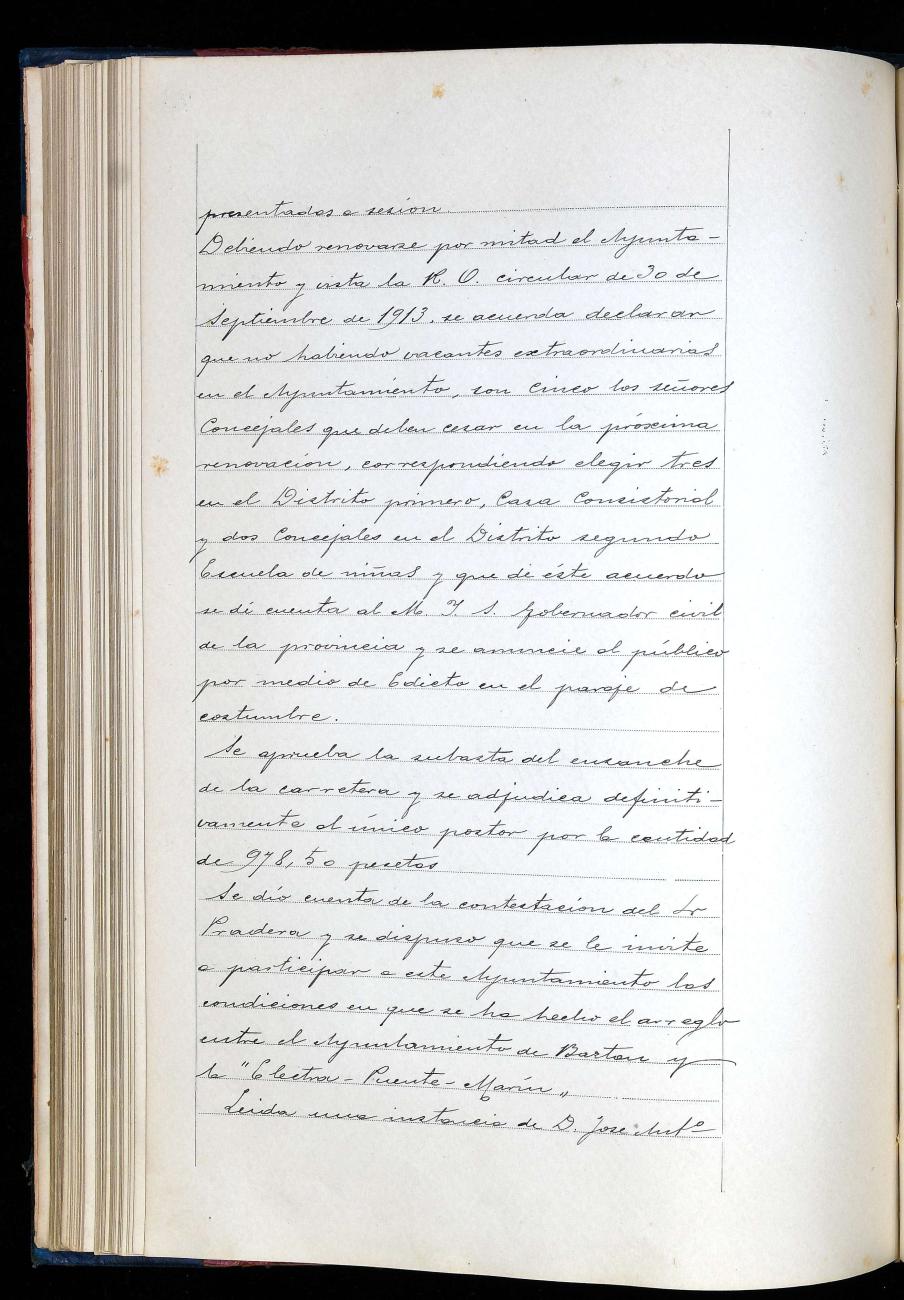 presentados a sesión
Debiendo renovarse por mitad el Ayunta-
miento y vista la R. O. circular de 30 de
Septiembre de 1913, se acuerda declarar
que no habiendo vacantes extraordinarias
en el Ayuntamiento, son cinco los señores
Concejales que deben cesar en la próxima
renovación, correspondiendo elegir tres
en el Distrito primero, Casa Consistorial
y dos Concejales en el Distrito segundo
Escuela de niñas y que de éste acuerdo
se dé cuenta al M. I. S. Gobernador civil
de la provincia y se anuncie al público
por medio de Edicto en el paraje de
costumbre.
Se aprueba la subasta del ensanche
de la carretera y se adjudica definiti-
vamente al único postor por la cantidad
de 978,50 pesetas
Se dío cuenta de la contestación del Sr
Pradera y se dispuso que se le invite
a participar a este Ayuntamiento las
condiciones en que se ha hecho el arreglo
entre el Ayuntamiento de Baztan y
la "Electra-Puente-Marín„
Leida una instancia de D. Jose Antº